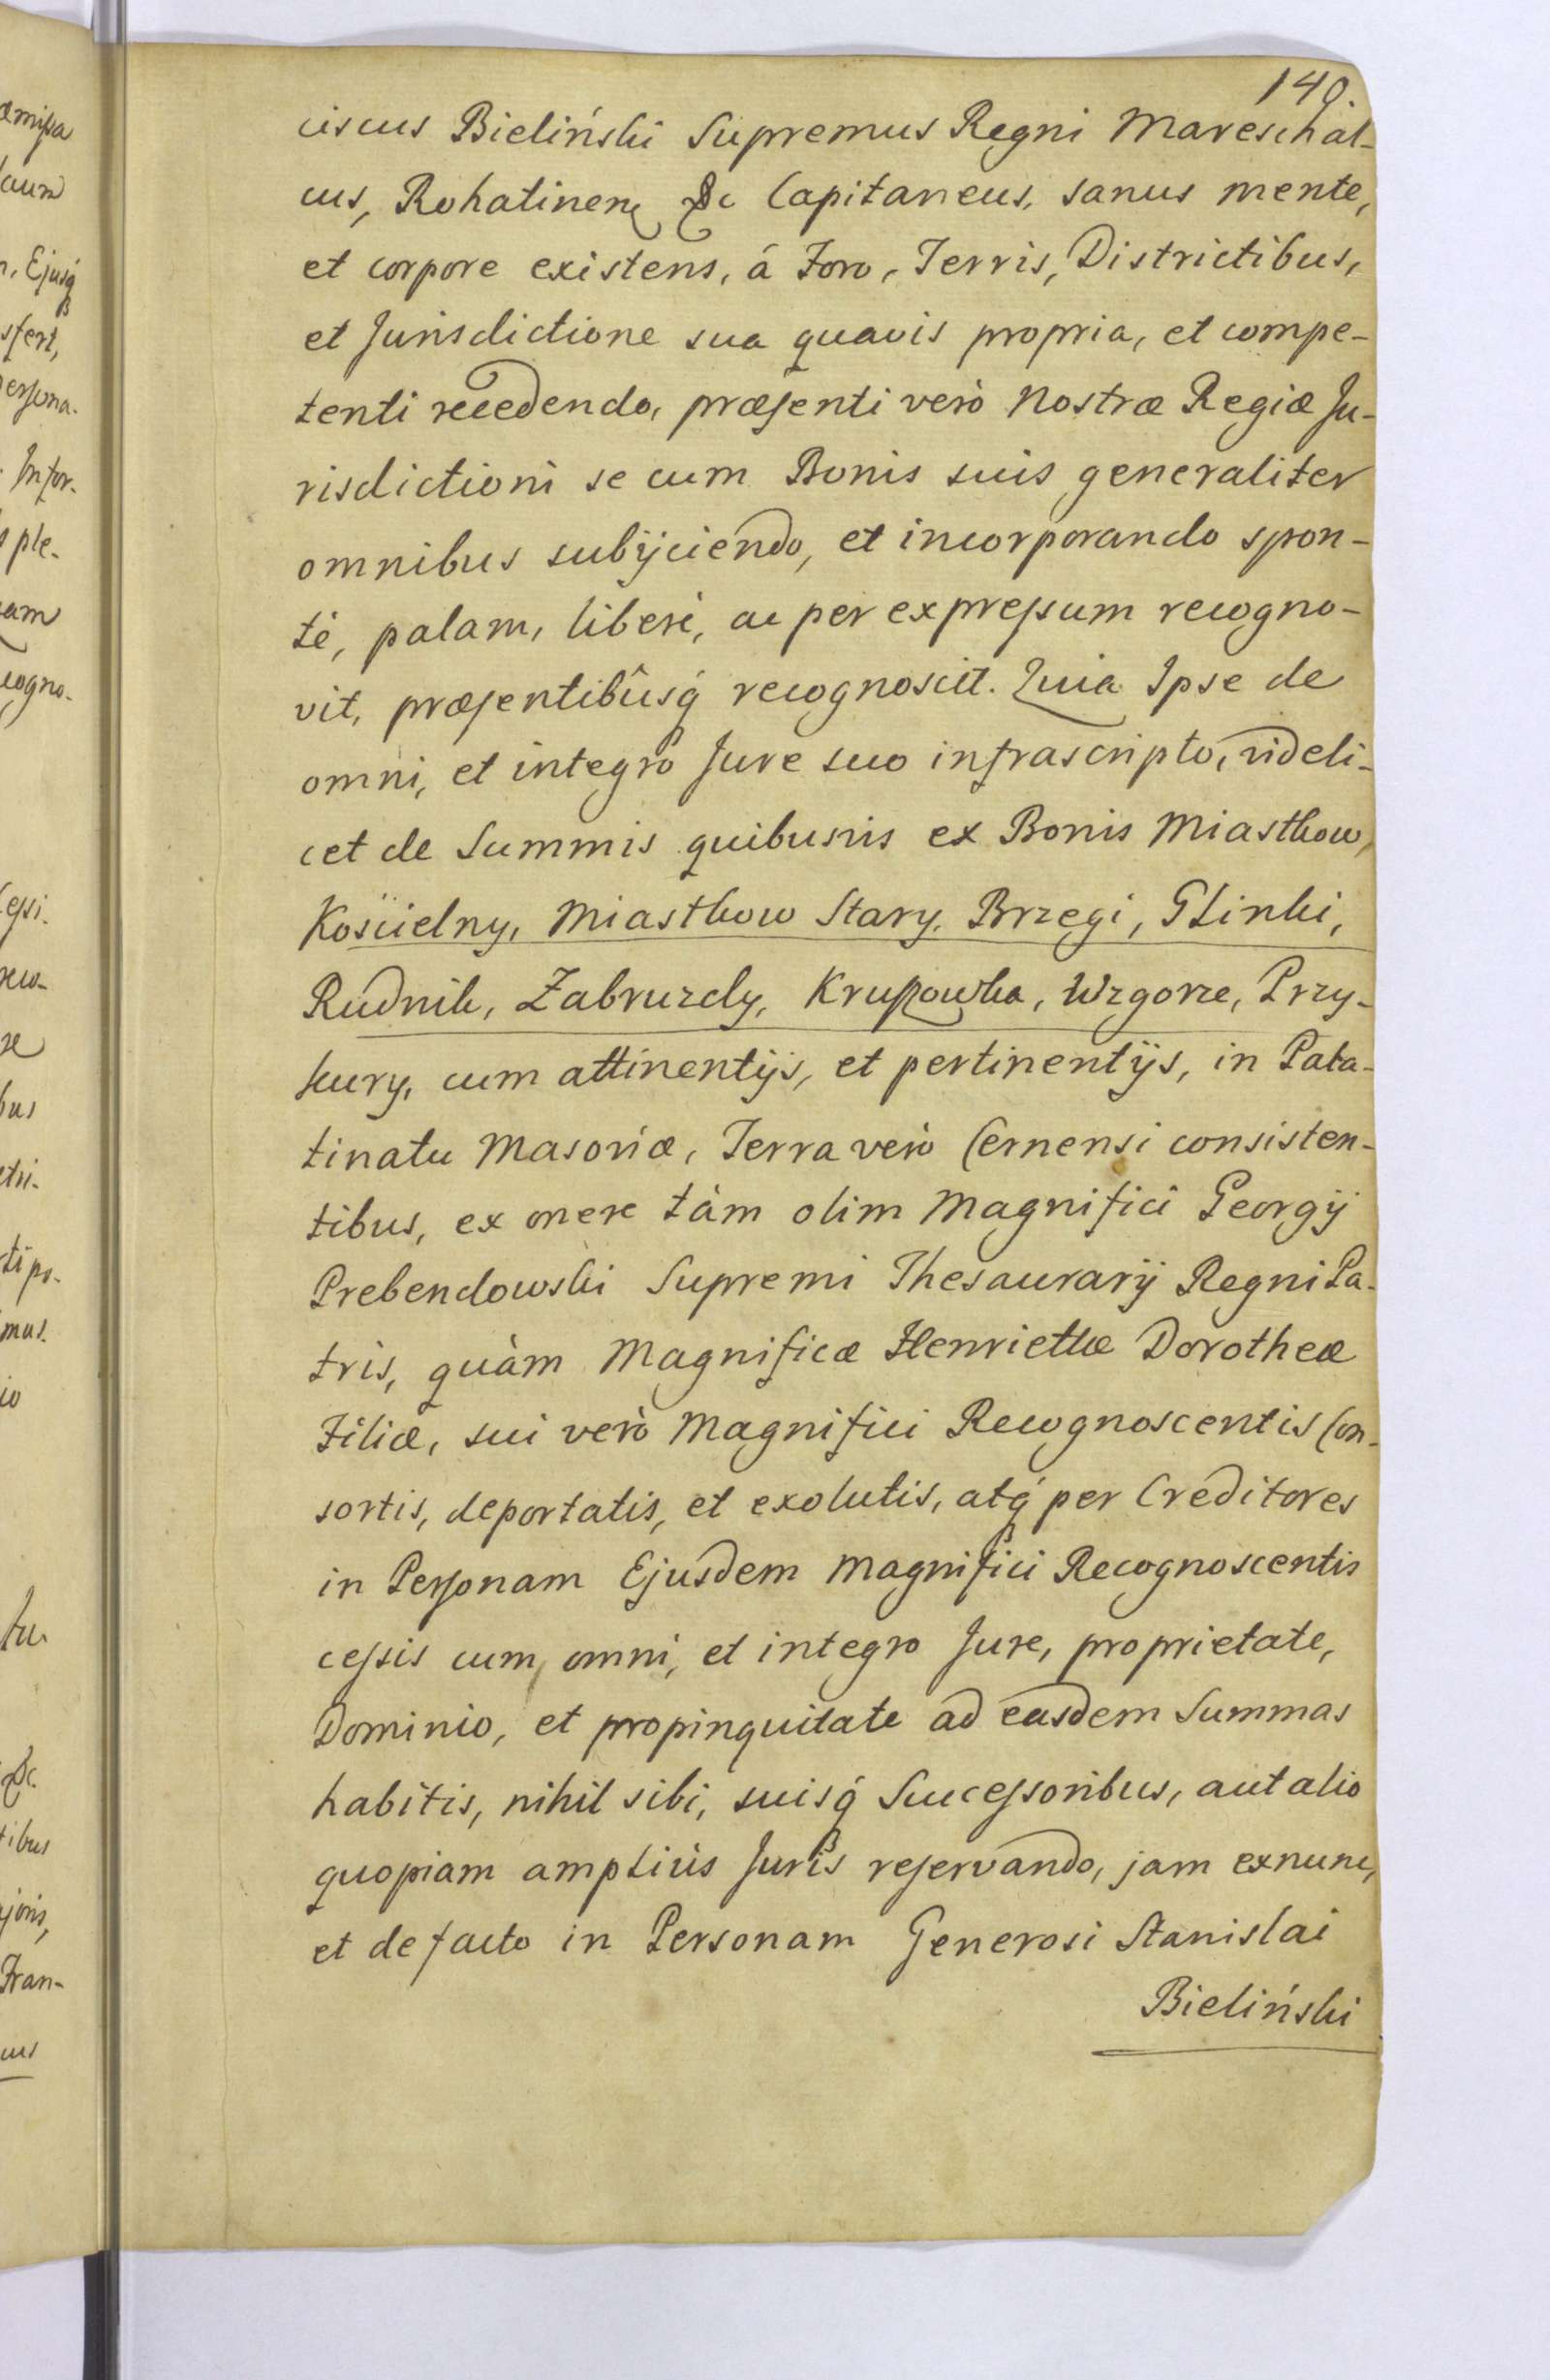 140.
ciscus Bieliński Supremus Regni Mareschal-
cus, Rohatinen &c Capitaneus, sanus mente,
et corpore existens, á Foro, Terris, Districtibus,
et Jurisdictione sua quavis propria, et compe-
tenti recedendo, præsenti verò Nostræ Regiæ Ju-
risdictioni se cum Bonis suis generaliter
omnibus subÿciendo, et incorporando spon-
tè, palam, liberè, ac per expressum recogno-
vit, præsentibûsq́ recognoscit. Quia Ipse de
omni, et integro Jure suo infrascripto, videli-
cet de Summis quibusvis ex Bonis Miastkow,
Kościelny, Miastkow Stary, Brzegi, Glinki,
Rudnik, Zabruzdy, Krupowka, Wzgorze, Przy-
kury, cum attinentÿs, et pertinentÿs, in Pala-
tinatu Masoviæ, Terra verò Cernensi consisten-
tibus, ex onere tàm olim Magnifici Georgÿ
Prebendowski Supremi Thesaurarÿ Regni Pa-
tris, quàm Magnificæ Henriettæ Dorotheæ
Filiæ, sui verò Magnifici Recognoscentis Con-
sortis, deportatis, et exolutis, atq́ per Creditores
in Personam Ejusdem Magnifici Recognoscentis
cessis cum omni, et integro Jure, proprietate,
Dominio, et propinquitate ad easdem Summas
habitis, nihil sibi, suisq́ Successoribus, aut alio
quopiam ampliùs Juris reservando, jam exnunc,
et de facto in Personam Generosi Stanislai
Bieliński